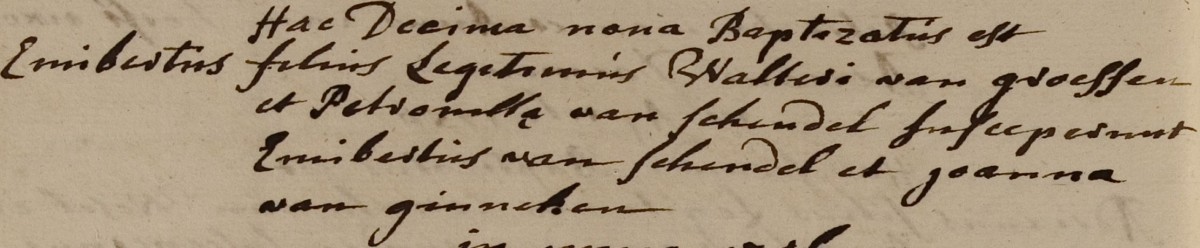 Hac Decima nona Baptizatus est
Emibertus filius Legitimus Walteri van groessen
et Petronella van schendel susceperunt
Emibertus van schendel et joanna
van ginneken